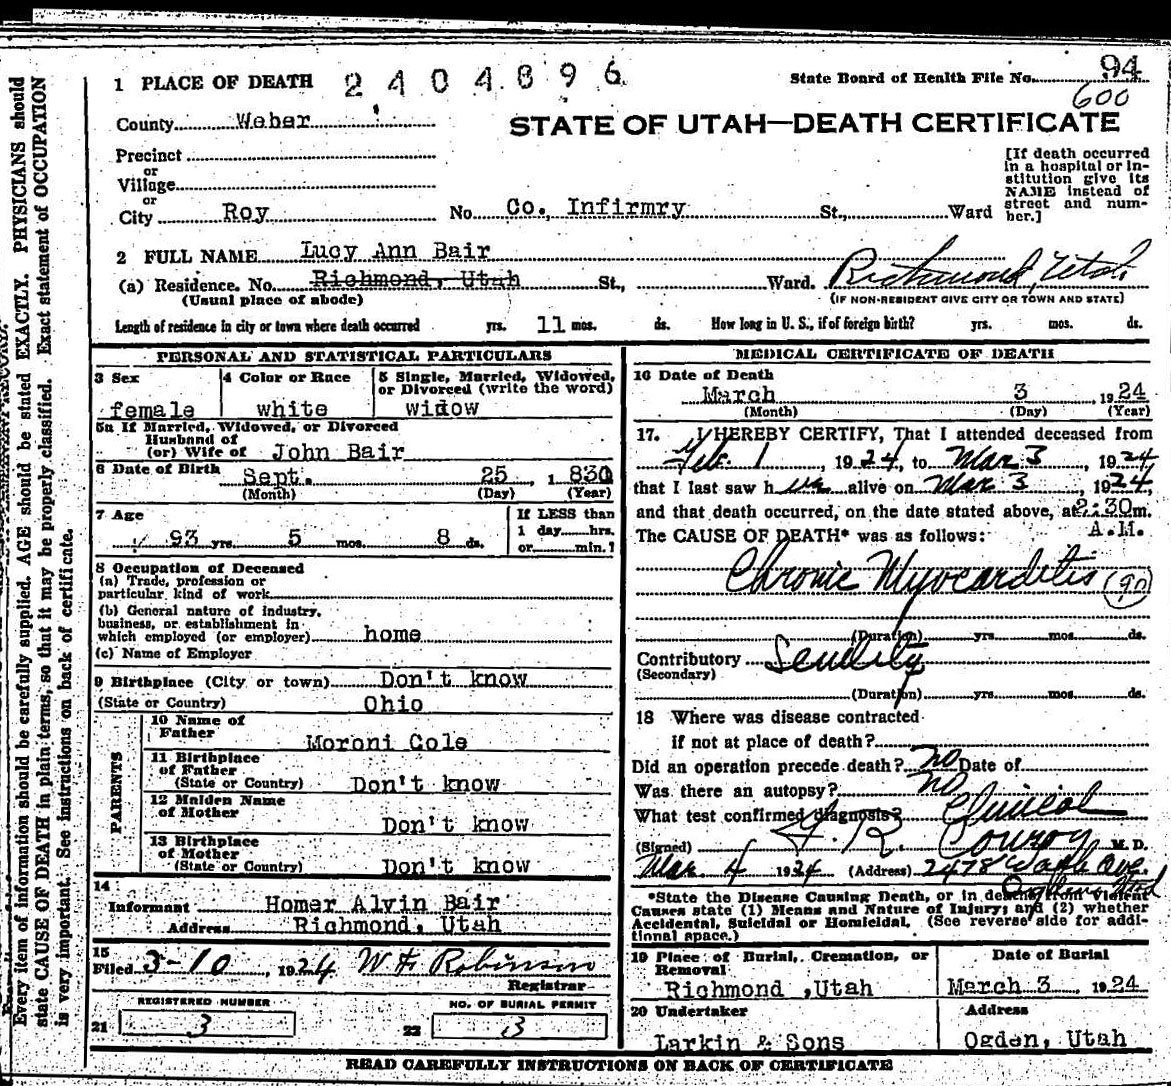 1 PLACE OF DEATH 2404896 State Board of Health File No. 94
600
County Weber
STATE OF UTAH—DEATH CERTIFICATE
Precinct
or
Village
or
City Roy No. Co. Infirmry St., Ward
[If death occurred in a hospital or institution give its NAME instead of street and number.]
2 FULL NAME Lucy Ann Bair
(a) Residence. No. Richmond, Utah St., Ward. Richmond, Utah.
(Usual place of abode) (IF NON-RESIDENT GIVE CITY OR TOWN AND STATE)
Length of residence in city or town where death occurred yrs. 11 mos. ds. How long in U. S., if of foreign birth? yrs. mos. ds.
PERSONAL AND STATISTICAL PARTICULARS
3 Sex
female
4 Color or Race
white
5 Single, Married, Widowed, or Divorced (write the word)
widow
5a If Married, Widowed, or Divorced
Husband of
(or) Wife of John Bair
6 Date of Birth Sept. 25, 1830
(Month) (Day) (Year)
7 Age
93 yrs. 5 mos. 8 ds.
If LESS than
1 day hrs.
or min.?
8 Occupation of Deceased
(a) Trade, profession or
particular kind of work
(b) General nature of industry,
business, or establishment in
which employed (or employer) home
(c) Name of Employer
9 Birthplace (City or town) Don't know
(State or Country) Ohio
PARENTS
10 Name of
Father Moroni Cole
11 Birthplace
of Father
(State or Country) Don't know
12 Maiden Name
of Mother Don't know
13 Birthplace
of Mother
(State or Country) Don't know
14
Informant Homer Alvin Bair
Address Richmond, Utah
15
Filed 3-10, 1924 W F Robinson
Registrar
REGISTERED NUMBER
21 3
NO. OF BURIAL PERMIT
22 3
MEDICAL CERTIFICATE OF DEATH
16 Date of Death
March 3, 1924
(Month) (Day) (Year)
17. I HEREBY CERTIFY, That I attended deceased from
Feb. 1, 1924, to Mar 3, 1924
that I last saw her alive on Mar 3, 1924,
and that death occurred, on the date stated above, at 2:30 m.
A.M.
The CAUSE OF DEATH* was as follows:
Chronic Myocarditis (90)
(Duration) yrs. mos. ds.
Contributory Senility
(Secondary)
(Duration) yrs. mos. ds.
18 Where was disease contracted
if not at place of death?
Did an operation precede death? no Date of
Was there an autopsy? no
What test confirmed diagnosis? Clinical
(Signed) Conroy M. D.
Mar. 4 1924 (Address) 2478 Wash Ave.
Ogden, Utah
*State the Disease Causing Death, or in deaths from Violent
Causes state (1) Means and Nature of Injury; and (2) whether
Accidental, Suicidal or Homicidal. (See reverse side for additional space.)
19 Place of Burial, Cremation, or
Removal
Richmond ,Utah
Date of Burial
March 3, 1924
20 Undertaker
Larkin & Sons
Address
Ogden, Utah
READ CAREFULLY INSTRUCTIONS ON BACK OF CERTIFICATE
Every item of information should be carefully supplied. AGE should be stated EXACTLY. PHYSICIANS should
state CAUSE OF DEATH in plain terms, so that it may be properly classified. Exact statement of OCCUPATION
is very important. See instructions on back of certificate.